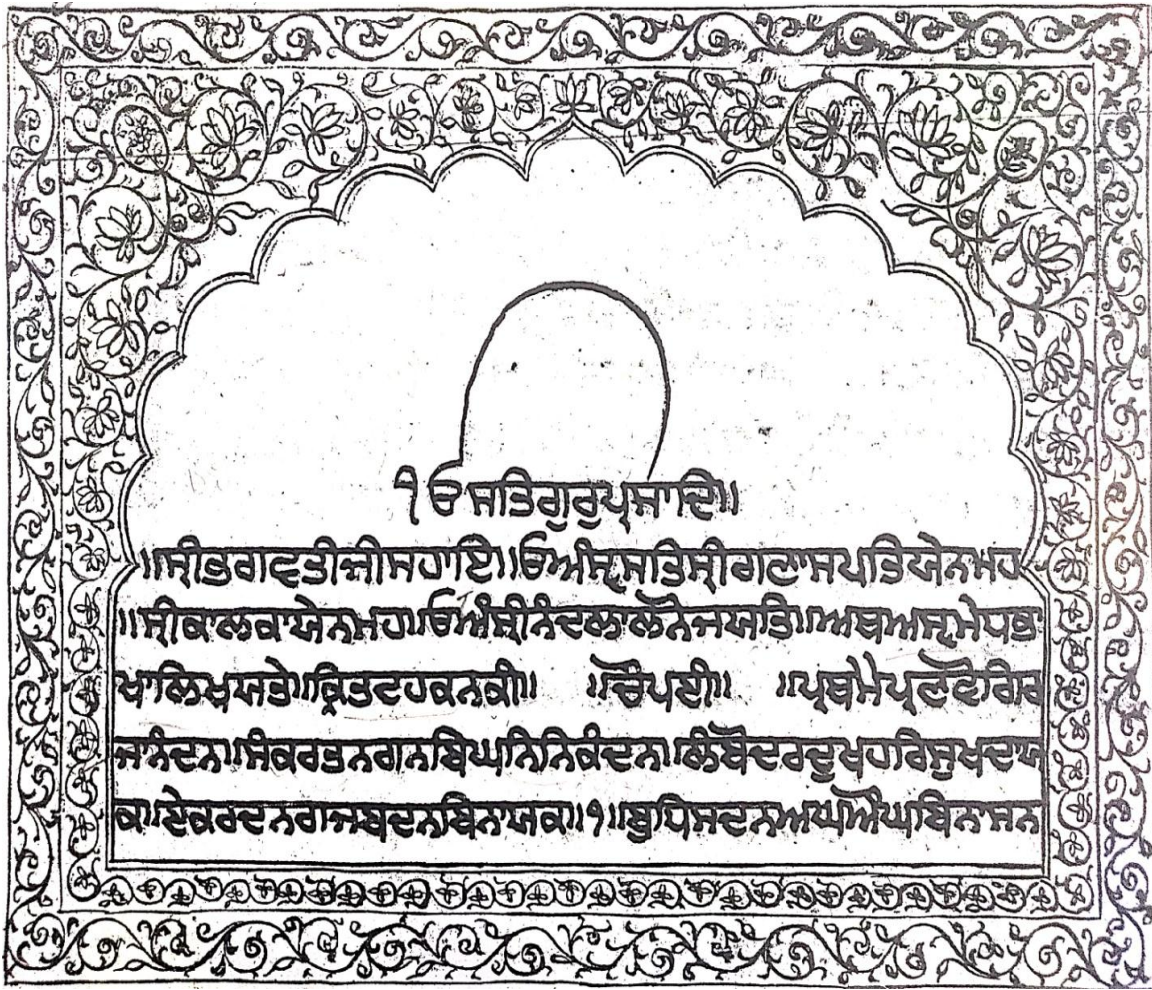 ੧ਓ ਸਤਿਗੁਰੁਪ੍ਰਸਾਦਿ॥
॥ਸ੍ਰੀਭਗਵਤੀਜੀਸਹਾਇ॥ਓਅੰਸ੍ਵਸਤਿਸ੍ਰੀਗਣਾਸਪਤਿਯੇਨਮਹ
॥ਸ੍ਰੀਕਾਲਕਾਯੇਨਮਹ॥ਓਅੰਸ੍ਰੀਨੰਦਲਾਲੋਨੇਜਯਤਿ॥ਅਥਅਸ੍ਵਮੇਧਭਾ
ਖਾਲਿਖ੍ਯਤੇ॥ਕ੍ਰਿਤਟਹਕਨਕੀ॥ ॥ਚੌਪਈ॥ ॥ਪ੍ਰਥਮੇਪ੍ਰਣਵੋਗਿਰ
ਜਾਨੰਦਨ॥ਸੰਕਰਤਨਗਨਬਿਘਨਿਨਿਕੰਦਨ॥ਲੰਬੋਦਰਦੁਖਹਰਿਸੁਖਦਾਯ
ਕ॥ਏਕਰਦਨਗਜਬਦਨਬਿਨਾਯਕ॥੧॥ਬੁਧਿਸਦਨਅਘਔਘਬਿਨਾਸਨ